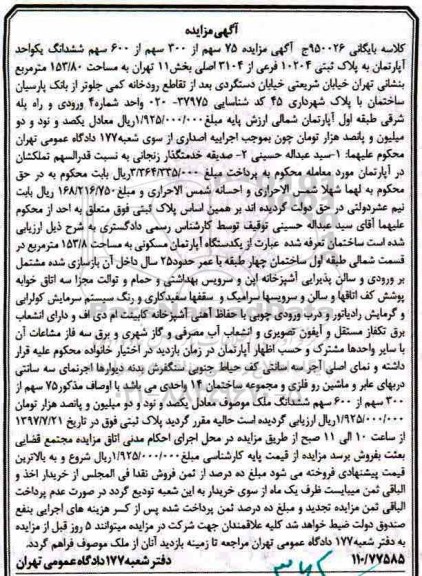 آگهی مزایده
کلاسه بایگانی ۹۵۰۰۲۶ج آگهی مزایده ۷۵ سهم از ۳۰۰ سهم از ۶۰۰ سهم ششدانگ یکواحد
آپارتمان به پلاک ثبتی ۱۰۲۰۴ فرعی از ۳۱۰۴ اصلی بخش۱۱ تهران به مساحت ۱۵۳/۸۰ مترمربع
بنشانی تهران خیابان شریعتی خیابان دستگردی بعد از تقاطع رودخانه کمی جلوتر از بانک پارسیان
ساختمان با پلاک شهرداری ۴۵ کد شناسایی ۳۷۹۷۵- ۰۲۰ واحد شماره۴ ورودی و راه پله
شرقی طبقه اول آپارتمان شمالی ارزش پایه مبلغ۱/۹۲۵/۰۰۰/۰۰۰ریال معادل یکصد و نود و دو
میلیون و پانصد هزار تومان چون بموجب اجراییه اصداری از سوی شعبه۱۷۷ دادگاه عمومی تهران
محکوم علیهما: ۱-سید عبداله حسینی ۲- صدیقه خدمتگذار زنجانی به نسبت قدرالسهم تملکشان
در آپارتمان مورد معامله محکوم به پرداخت مبلغ ۳/۳۶۴/۳۳۵/۰۰۰ریال بابت محکوم به در حق
محکوم به لهما شهلا شمس الاحرازی و احسانه شمس الاحرازی و مبلغ۱۶۸/۲۱۶/۷۵۰ ریال بابت
نیم عشردولتی در حق دولت گردیده اند بر همین اساس پلاک ثبتی فوق متعلق به احد از محکوم
علیهما آقای سید عبداله حسینی توقیف توسط کارشناس رسمی دادگستری به شرح ذیل ارزیابی
شده است ساختمان تعرفه شده عبارت از یکدستگاه آپارتمان مسکونی به مساحت ۱۵۳/۸ مترمربع در
قسمت شمالی طبقه اول ساختمان چهار طبقه با عمر حدود۲۵ سال داخل آن بازسازی شده مشتمل
بر ورودی و سالن پذیرایی آشپزخانه اپن و سرویس بهداشتی و حمام و توالت مجزا سه اتاق خوابه
پوشش کف اتاقها و سالن و سرویسها سرامیک و سقفها سفیدکاری و رنگ سیستم سرمایش کولرابی
و گرمایش رادیاتور و درب ورودی چوبی با حفاظ آهنی آشپزخانه کابینت ام دی اف و دارای انشعاب
برق تکفاز مستقل و آیفون تصویری و انشعاب آب مصرفی و گاز شهری و برق سه فاز مشاعات آن
با سایر واحدها مشترک و حسب اظهار آپارتمان در زمان بازدید در اختیار خانواده محکوم علیه قرار
داشته و نمای اصلی آجر سه سانتی کف حیاط جنوبی سنگفرش بدنه دیوارها اجرنمای سه سانتی
دربهای عابر و ماشین رو فلزی و مجموعه ساختمان ۱۴ واحدی می باشد با اوصاف مذکور۷۵ سهم از
۳۰۰ سهم از ۶۰۰ سهم ششدانگ ملک موصوف معادل یکصد و نود و دو میلیون و پانصد هزار تومان
۱/۹۲۵/۰۰۰/۰۰۰ریال ارزیابی گردیده است حالیه مقرر گردید پلاک ثبتی فوق در تاریخ ۱۳۹۷/۷/۲۱
از ساعت ۱۰ الی ۱۱ صبح از طریق مزایده در محل اجرای احکام مدنی اتاق مزایده مجتمع قضایی
بعثت بفروش برسد مزایده از قیمت پایه کارشناسی مبلغ۱/۹۲۵/۰۰۰/۰۰۰ریال شروع و به بالاترین
قیمت پیشنهادی فروخته می شود مبلغ ده درصد از ثمن فروش نقدا فی المجلس از خریدار اخذ و
الباقی ثمن میبایست ظرف یک ماه از سوی خریدار به این شعبه تودیع گردد در صورت عدم پرداخت
الباقی ثمن مزایده تجدید و مبلغ ده درصد ثمن پرداخت شده پس از کسر هزینه های اجرایی بنفع
صندوق دولت ضبط خواهد شد کلیه علاقمندان جهت شرکت در مزایده میتوانند ۵ روز قبل از مزایده
به دفتر شعبه۱۷۷ دادگاه عمومی تهران مراجعه تا زمینه بازدید آنان از ملک موصوف فراهم گردد.
۱۱۰/۷۷۵۸۵ دفتر شعبه۱۷۷دادگاه عمومی تهران